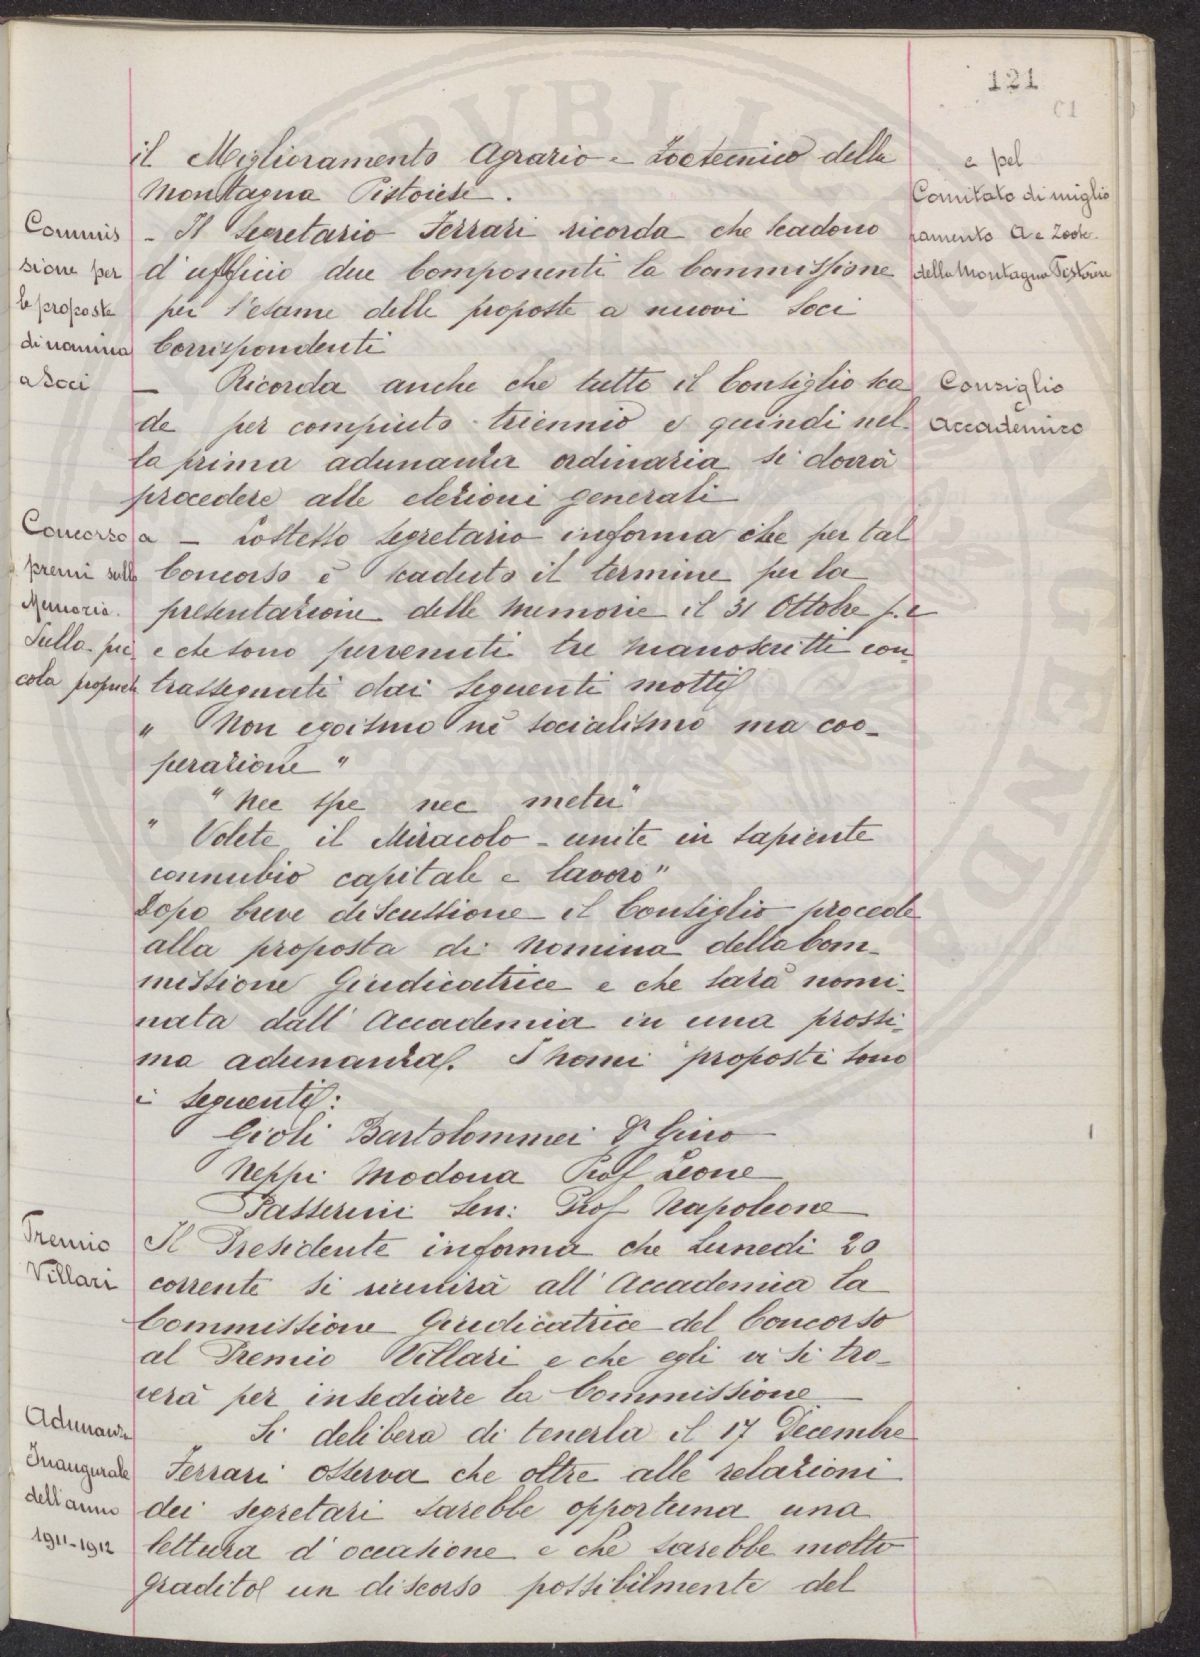 121
il Miglioramento Agrario e Zootecnico della
Montagna Pistoiese.
e pel
Comitato di miglio
ramento A e Zoote.
della Montagna Pistoiese
Commis
sione per
le proposte
di nomina
a Soci
- Il Segretario Ferrari ricorda che scadono
d'ufficio due Componenti la Commissione
per l'esame delle proposte a nuovi Soci
Corrispondenti
— Ricorda anche che tutto il Consiglio sca
de per compiuto triennio e quindi nel-
la prima adunanza ordinaria si dovrà
procedere alle elezioni generali
Consiglio
Accademico
Concorso a
premi sulle
Memorie
Sulla pic
cola propriet
— Lo stesso segretario informa che per tal
Concorso è scaduto il termine per la
presentazione delle Memorie il 31 Ottobre
e che sono pervenuti tre manoscritti con-
trassegnati dai seguenti motti
" Non egoismo nè socialismo ma coo-
perazione "
" Nec spe nec metu "
" Volete il Miracolo - unite in sapiente
connubio capitale e lavoro "
Dopo breve discussione il Consiglio procede
alla proposta di nomina della Com-
missione Giudicatrice e che sarà nomi-
nata dall'Accademia in una prossi-
ma adunanza. I nomi proposti sono
i seguenti:
Gioli Bartolommei Dr Gino
Neppi Modona Prof Leone
Passerini Sen: Prof Napoleone
Premio
Villari
Il Presidente informa che Lunedì 20
corrente si riunirà all'Accademia la
Commissione Giudicatrice del Concorso
al Premio Villari e che egli vi si tro-
verà per insediare la Commissione
Adunanza
Inaugurale
dell'anno
1911-1912
Si delibera di tenerla il 17 Decembre
Ferrari osserva che oltre alle relazioni
dei segretari sarebbe opportuna una
lettura d'occasione e che sarebbe molto
gradito un discorso possibilmente del